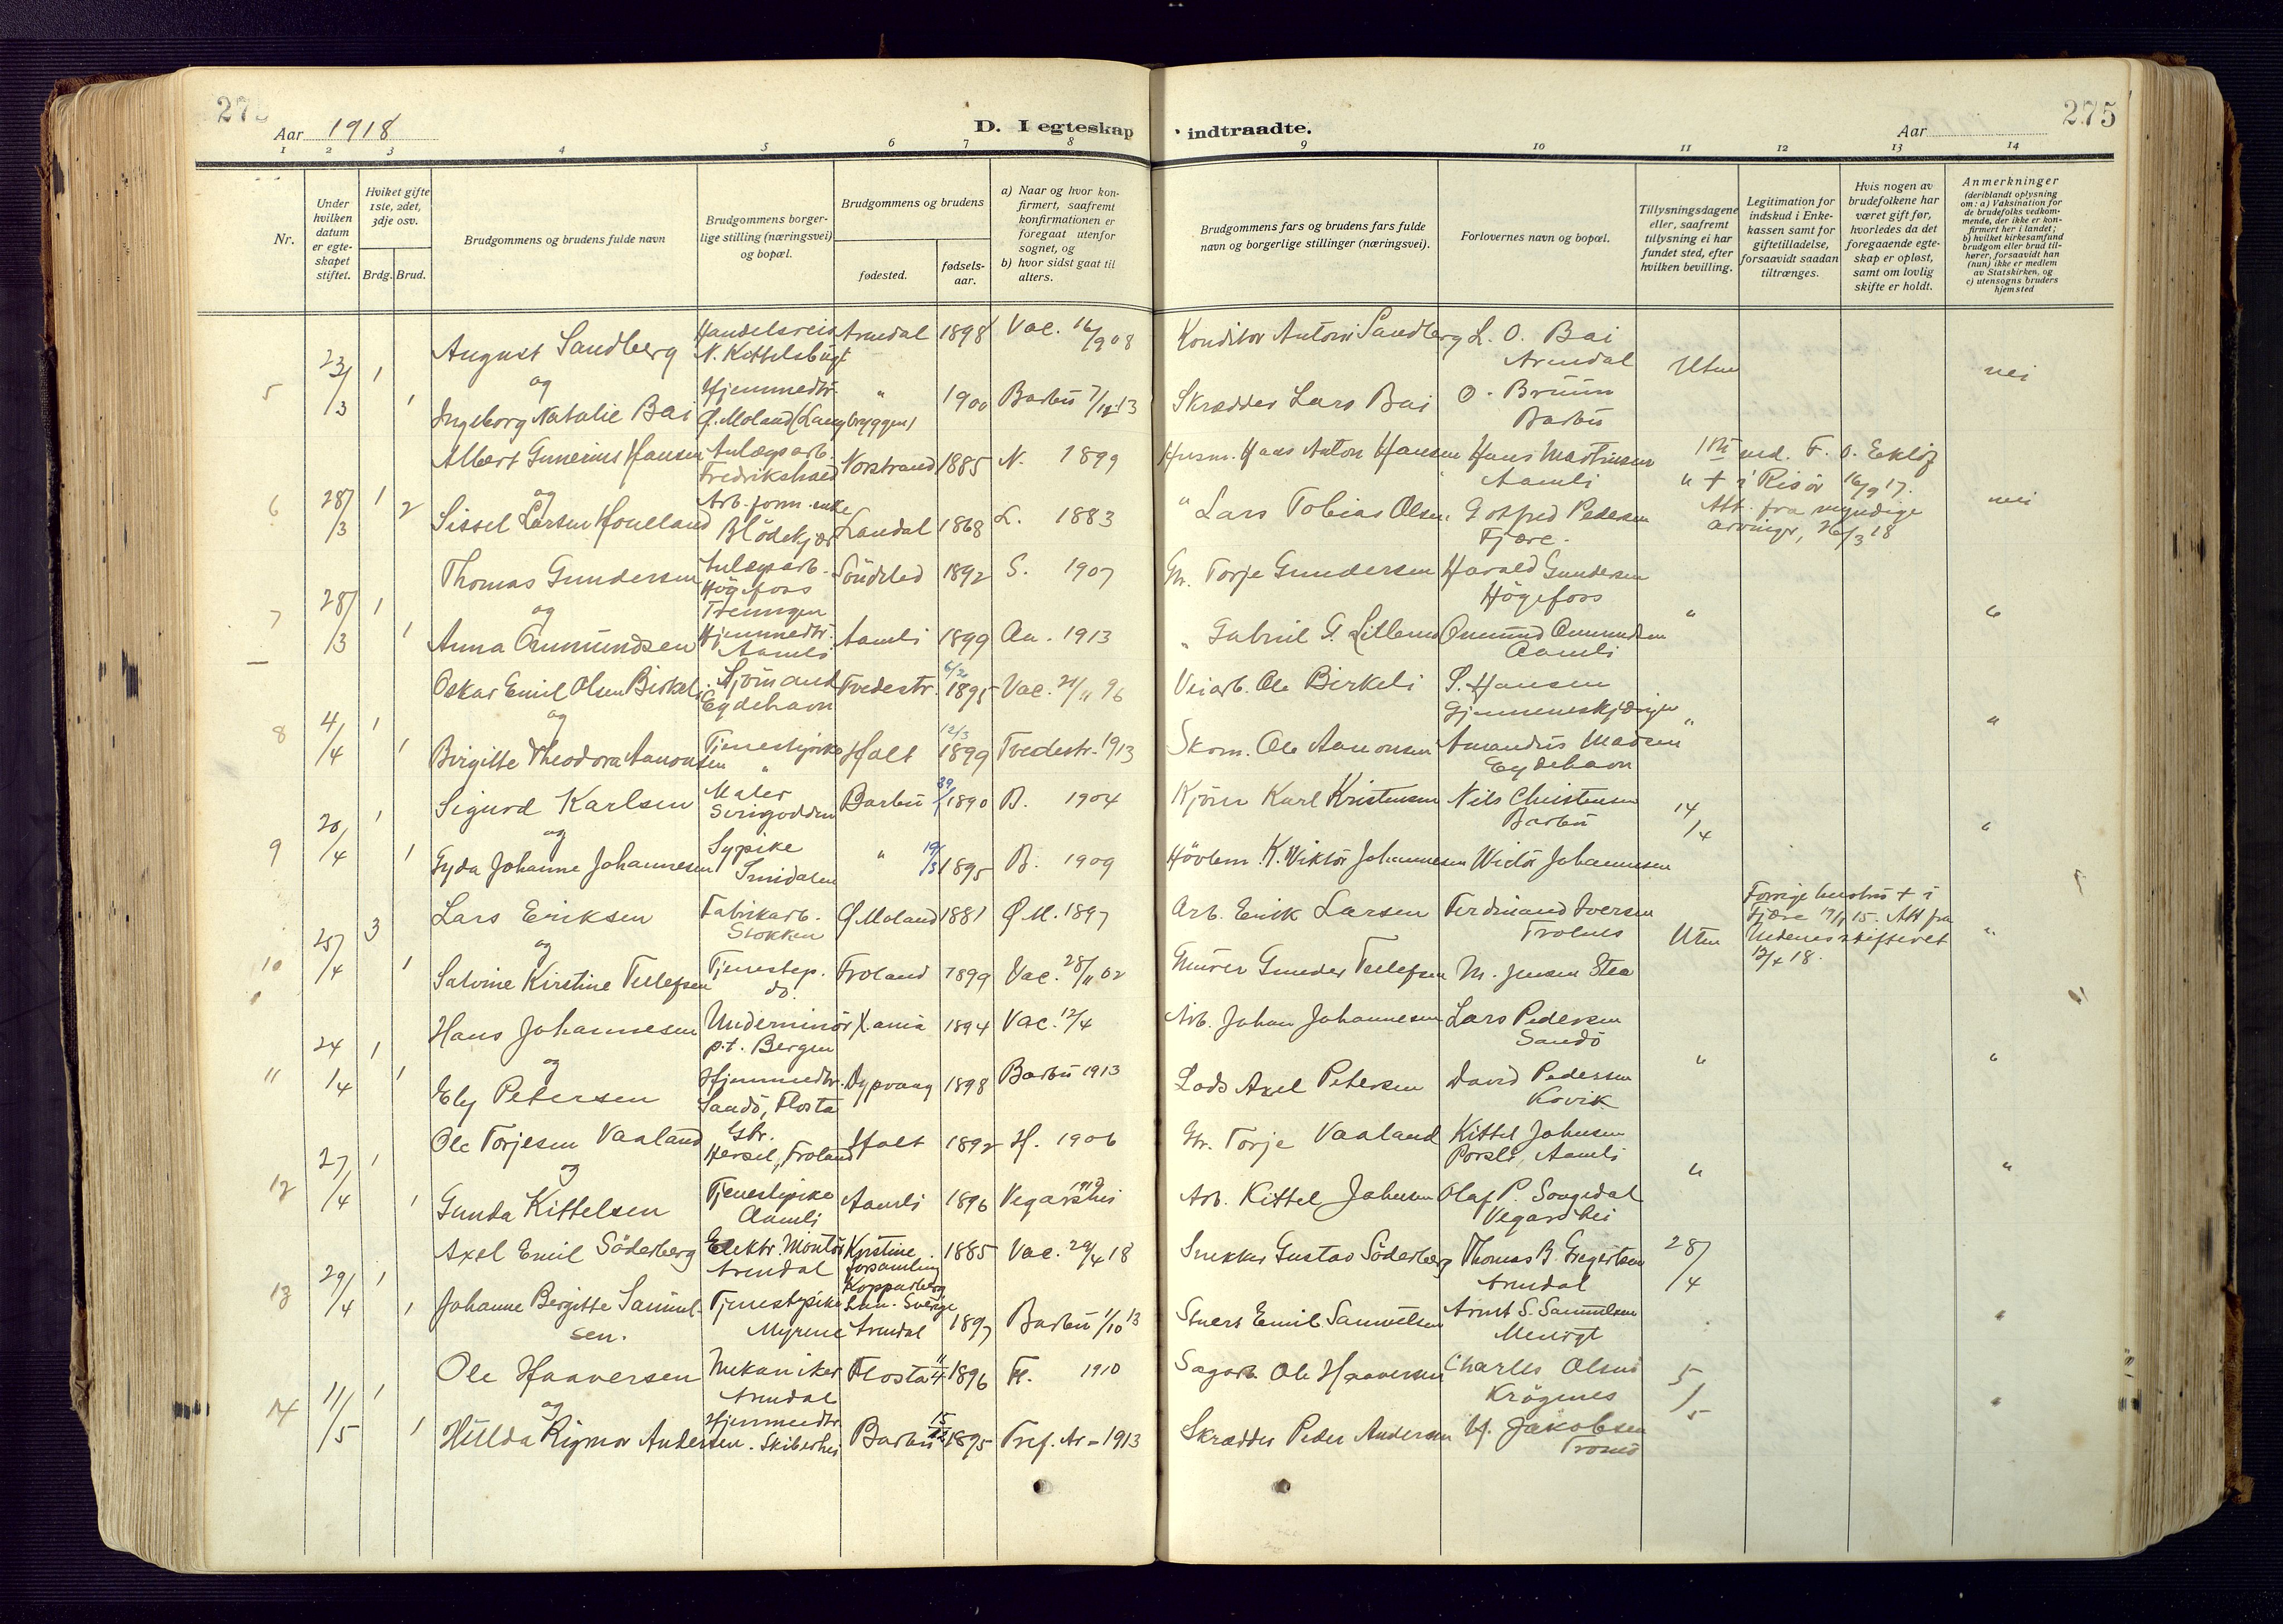 275
Aar 1918
D. I egteskap indtraadte.
Aar
275
1 2 3 4 5 6 7 8 9 10 11 12 13 14
Nr.
Under hvilken datum er egteskapet stiftet.
Hviket gifte 1ste, 2det, 3dje osv.
Brdg. Brud.
Brudgommens og brudens fulde navn
Brudgommens borgerlige stilling (næringsvei) og bopæl.
Brudgommens og brudens
fødested.
fødselsaar.
a) Naar og hvor konfirmert, saafremt konfirmationen er foregaat utenfor sognet, og
b) hvor sidst gaat til alters.
Brudgommens fars og brudens fars fulde navn og borgerlige stillinger (næringsvei).
Forlovernes navn og bopæl.
Tillysningsdagene eller, saafremt tillysning ei har fundet sted, efter hvilken bevilling.
Legitimation for indskud i Enkekassen samt for giftetilladelse, forsaavidt saadan tiltrænges.
Hvis nogen av brudefolkene har været gift før, hvorledes da det foregaaende egteskap er opløst, samt om lovlig skifte er holdt.
Anmerkninger (deriblandt oplysning om: a) Vaksination for de brudefolks vedkommende, der ikke er konfirmert her i landet; b) hvilket kirkesamfund brudgom eller brud tilhører, forsaavidt han (hun) ikke er medlem av Statskirken, og c) utensogns bruders hjemsted
5 23/3 1 August Sandberg Handelsreis. N. Kittelsbugt Arendal 1898 Vac. 16/9 08 Konditor Anton Sandberg L. O. Bai Arendal Uten nei
og
1 Ingeborg Natalie Bai Hjemmedtr. Ø. Moland (Langbryggen) " 1900 Barbu 7/12 13 Skrædder Lars Bai O. Bruun Barbu
6 28/3 1 Albert Gunerius Hansen Anlægsarb. Fredrikshald Norstrand 1885 N. 1899 Husm. Hans Anton Hansen Hans Martinsen Aamli
og
2 Sissel Larsen Houeland Arb. form. enke Blödekjær Landal 1868 L. 1883 " Lars Tobias Olsen Gotfred Pedersen Fjære.
1ste md. F. O. Eklöf + i Risör 16/9 17. Att. fra myndige arvinger, 26/3 18 nei
7 28/3 1 Thomas Gundersen Anlægsarb. Högefoss Treungen Söndeled 1892 S. 1907 Gbr. Torje Gundersen Harald Gundersen Högefoss " "
og
1 Anna Omundsen Hjemmedtr. Aamli Aamli 1899 Aa. 1913 " Gabriel G. Lillemo Omund Omundsen Aamli
8 4/4 1 Oskar Emil Olsen Birkeli Sjömand Eydehavn Tvedestr. 6/2 1895 Vac. 21/11 96 Veiarb. Ole Birkeli S. Hansen " "
og
1 Birgitte Theodora Aanonsen Tjenestepike " Holt 12/3 1899 Tvedestr. 1913 Skom. Ole Aanonsen Amandus Madsen Eydehavn
9 20/4 1 Sigurd Karlsen Maler Strigodden Barbu 1890 B. 1904 Kjörer Karl Kristensen Nils Christensen Barbu 14/4 "
og
1 Gyda Johanne Johannesen Sypike Smidalen " 19/3 1895 B. 1909 Hövlem. K. Viktor Johannesen Victor Johannesen
10 25/4 3 Lars Eriksen Fabrikarb. Stokken Ø. Moland 1881 Ø. M. 1897 Arb. Erik Larsen Ferdinand Iversen Trolnes Uten "
og
1 Salvine Kirstine Tellefsen Tjenestep. do. Froland 1899 Vac. 28/11 02 Murer Gunder Tellefsen M. Jensen Stea
Forrige hustru + i Fjære 17/1 15. Att fra Nedenes skifteret 12/4 18.
11 24/4 1 Hans Johannesen Underminör p.t. Bergen X.ania 1894 Vac. 12/4 Arb. Johan Johannesen Lars Pedersen Sandö " "
og
1 Ely Petersen Hjemmedtr. Sandö, Flosta Dypvaag 1898 Barbu 1913 Lods Axel Petersen David Pedersen Kovik
12 27/4 1 Ole Torjesen Vaaland Gbr. Hersel, Froland Holt 1892 H. 1906 Gbr. Torje Vaaland Kittel Johnsen Porsli, Aamli " "
og
1 Gunda Kittelsen Tjenestepike Aamli Aamli 1896 Vegarshei Arb. Kittel Johnsen Olaf P. Songedal Vegarshei
13 29/4 1 Axel Emil Söderberg Elektr. Montör Arendal Kristine forsamling Kopparberg Län. Sverige 1885 Vac. 29/4 18 Snekker Gustav Söderberg Thomas B. Gregertsen Arendal 28/4
1 Johanne Bergitte Samuelsen. Tjenestepike Myrene Arendal 1897 Barbu 1/10 13 Stuert Emil Samuelsen Arnt S. Samuelsen "
14 11/5 1 Ole Haaversen Mekaniker Arendal Flosta 11/4 1896 Fl. 1910 Sagarb. Ole Haaversen Charles Olsen Krögenes 5/5 "
og
1 Hillda Rigmor Andersen Hjemmedtr. Skiberhei Barbu 15/12 1895 Tref. Ar. 1913 Skrædder Peder Andersen H. Jakobsen Tromö